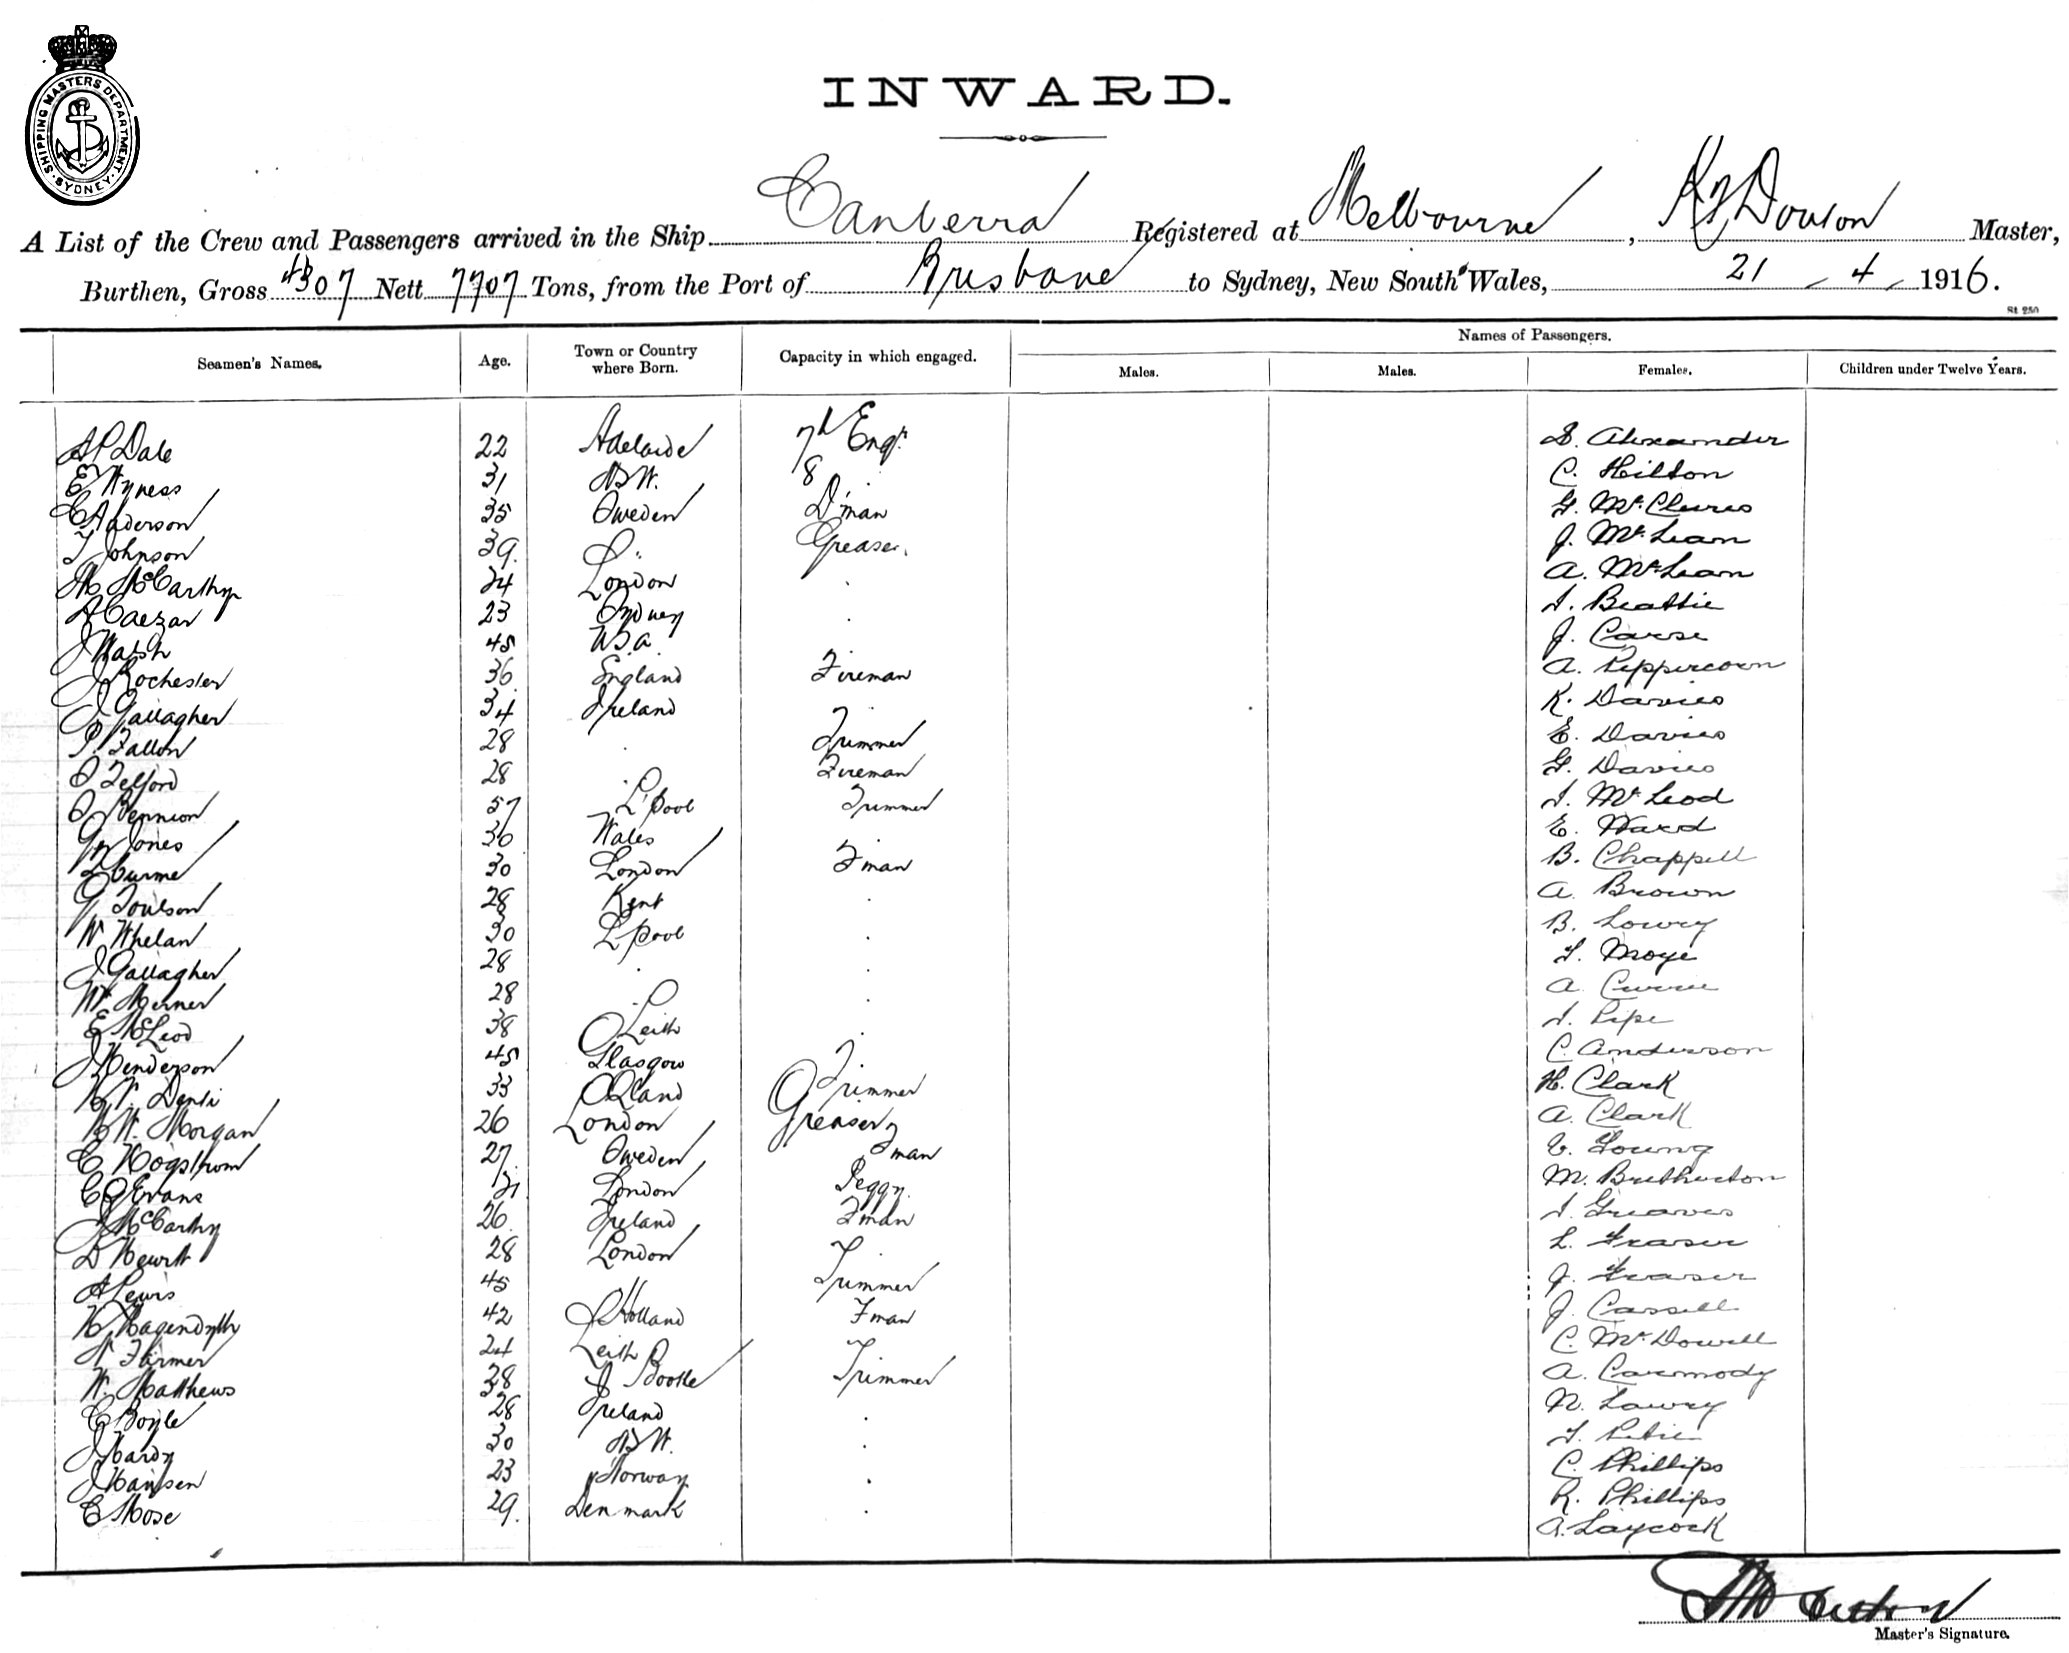 SHIPPING MASTERS DEPARTMENT. SYDNEY.
INWARD.
A List of the Crew and Passengers arrived in the Ship Canberra Registered at Melbourne, Master,
Burthen, Gross 4307 Nett 7707 Tons, from the Port of Brisbane to Sydney, New South Wales, 21 - 4 - 1916.
St 250
Names of Passengers.
Seamen's Names. Age. Town or Country where Born. Capacity in which engaged. Males. Males. Females. Children under Twelve Years.
A P Dale 22 Adelaide 7th Engr. S. Alexander
E Wyness 31 NSW. 8 C. Hilton
C Anderson 35 Sweden D'man G. McClures
T Johnson 39. Greaser. J. McLean
McCarthy 24 London A. McLean
A Caezar 23 Sydney I. Beattie
J Walsh 45 USA. J. Carse
J Rochester 36 England Fireman A. Peppercorn
J Gallagher 34 Ireland K. Davies
P. Fallon 28 Trimmer E. Davies
O Telford 28 Fireman G. Davies
O Bennion 57 L'pool Trimmer I. McLeod
G Jones 30 Wales E. Ward
30 London F man B. Chappell
G Toulson 28 Kent A. Brown
W Whelan 30 L'pool B. Lowry
J Gallagher 28 Moye
28 A. Currie
E McLeod 38 Leith I. Pipe
J Henderson 45 Glasgow C. Anderson
33 QLand Trimmer H. Clark
W. Morgan 26 London Greaser A. Clark
C Hogstrom 27. Sweden F man V. Young
C G Evans 21 London Peggy. M. Bretherton
J McCarthy 26. Ireland F man I. Greaves
D Hewitt 28 London L. Fraser
A Lewis 45 Trimmer J. Fraser
42 Holland F man J. Cassell
24 Leith C. McDowell
W. Matthews 38 Bootle Trimmer A. Carmody
C Boyle 28 Ireland N. Lawry
J Hardy 30 NSW.
J Hansen 23 Norway C. Phillips
C Mose 29. Denmark R. Phillips
A. Laycock
Master's Signature.